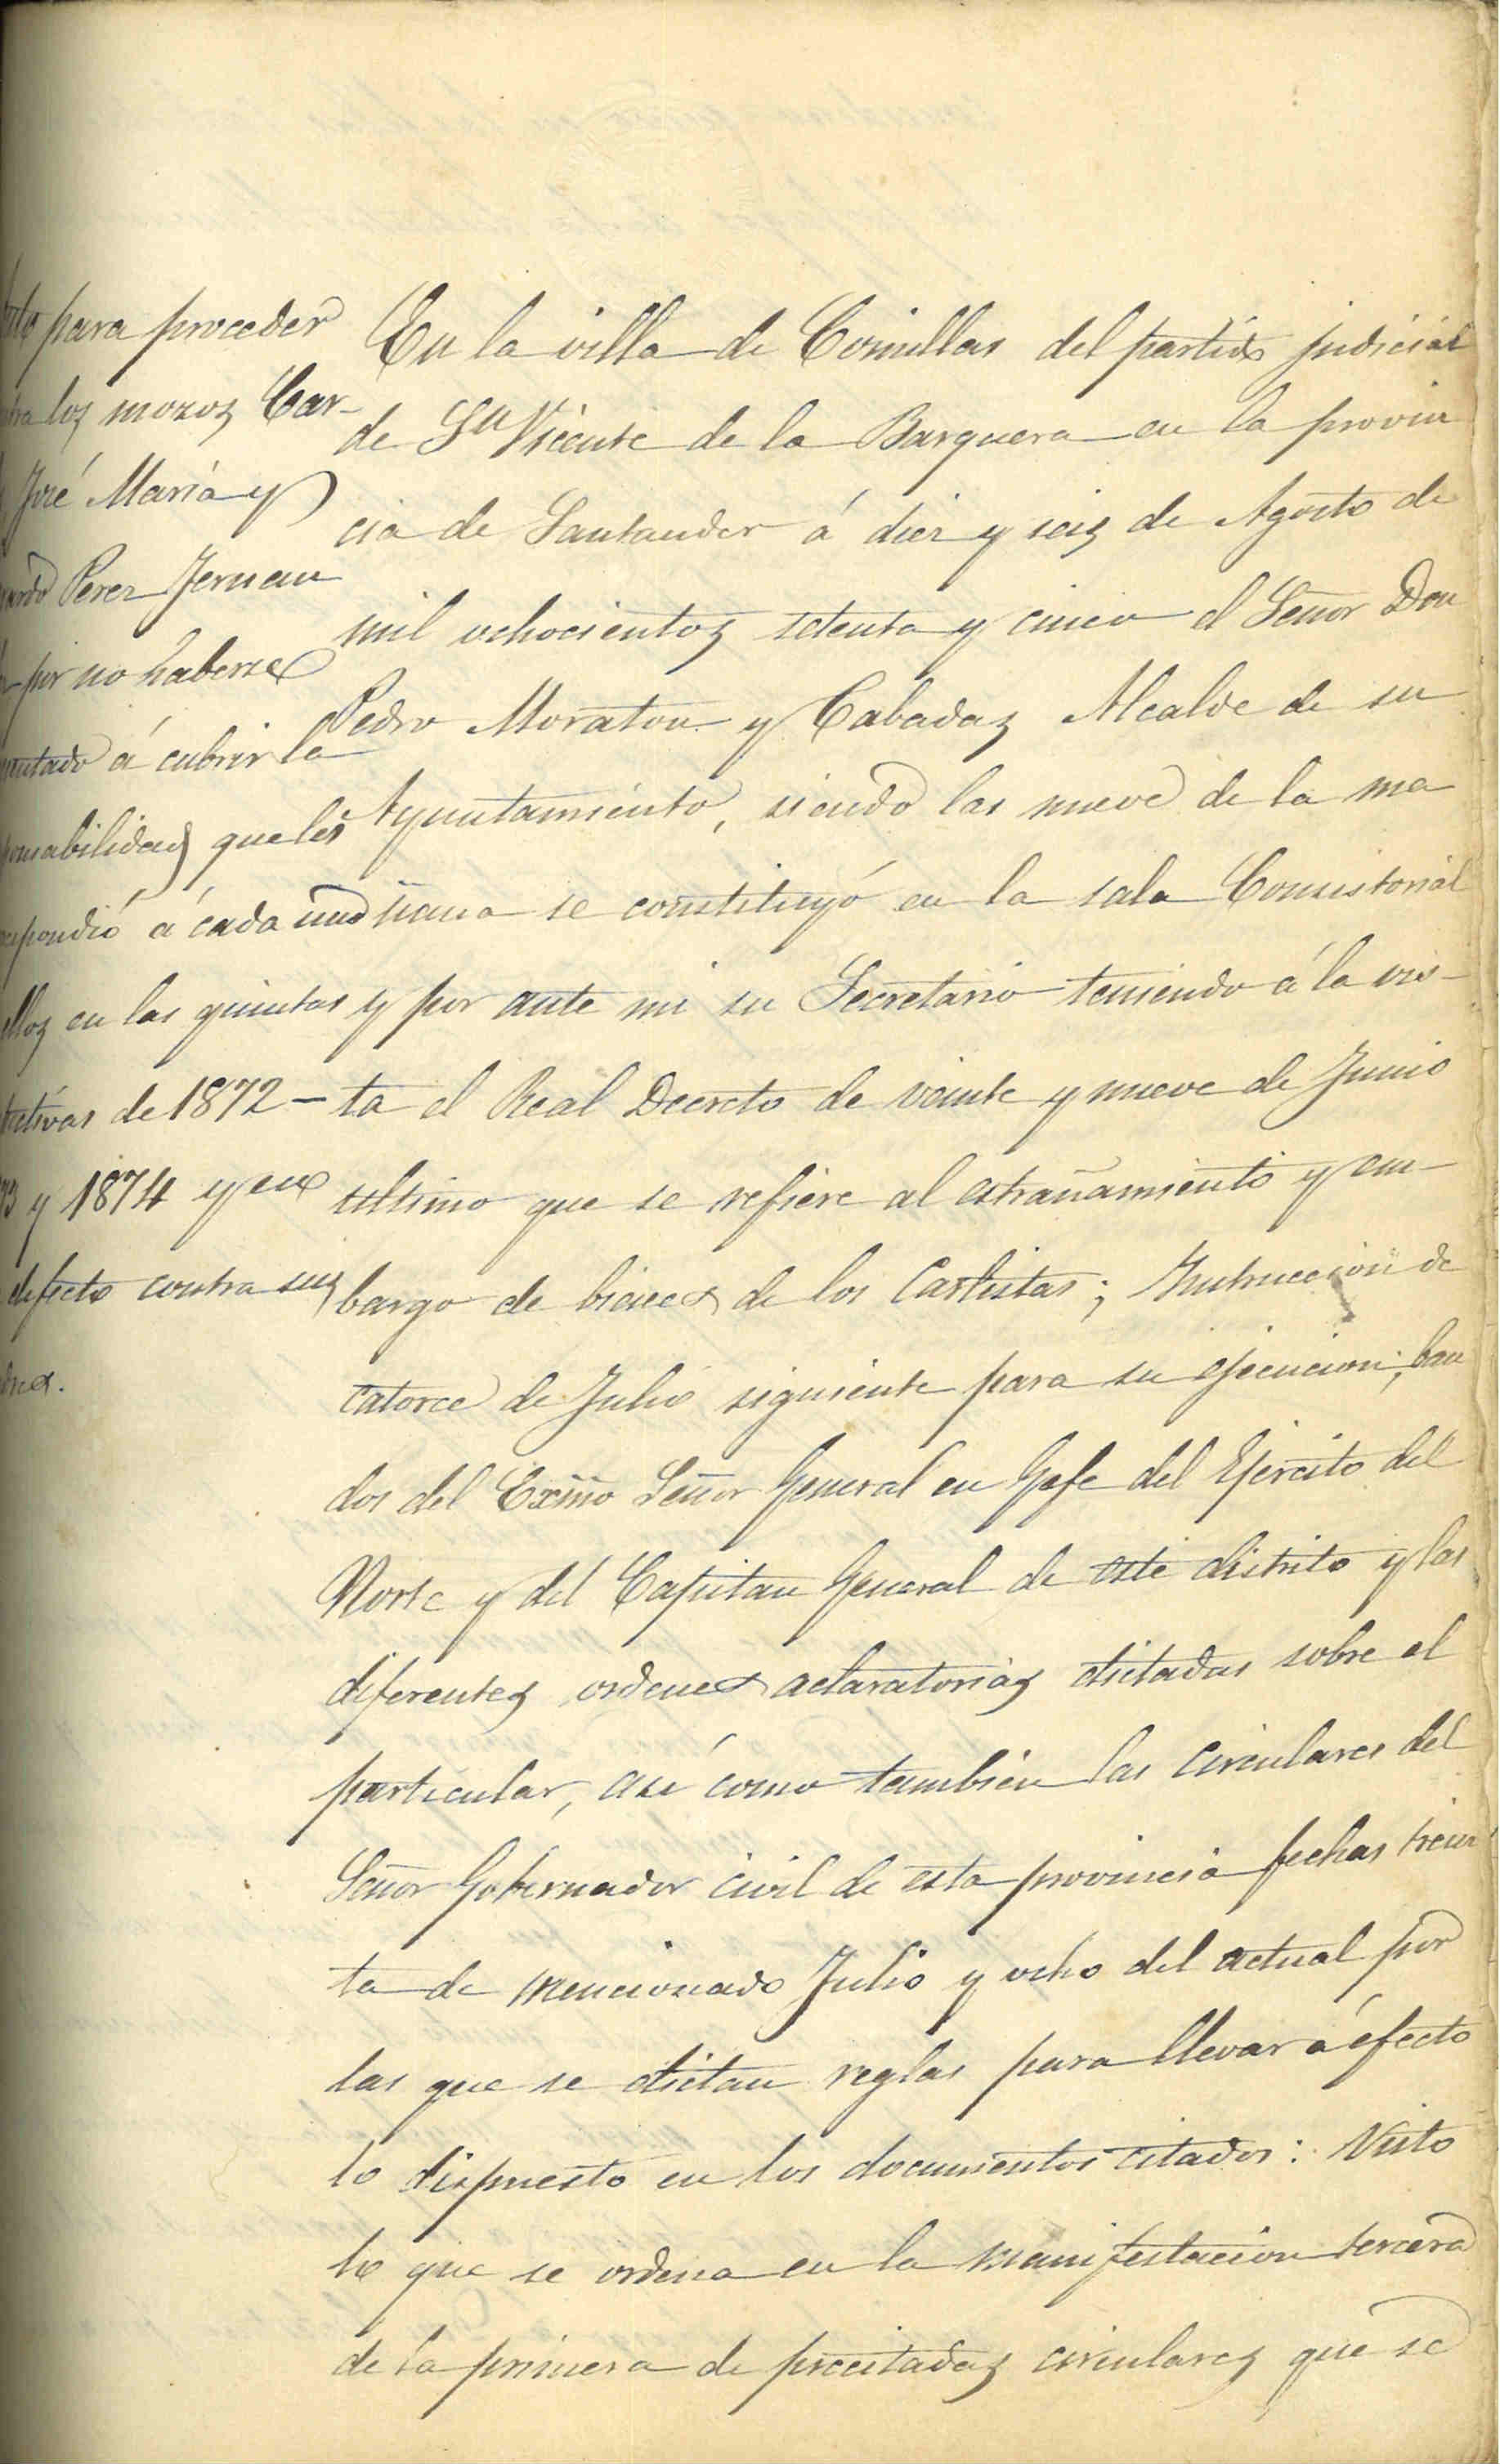 para proceder
los mozos Car-
José María y
Perez Fernan
por no haberse
á cubrir la
que les
á cada uno
en las quintas
de 1872 -
y 1874 y en
defecto contra sus
En la villa de Comillas del partido judicial
de Sn Vicente de la Barquera en la provin
cia de Santander á diez y seis de Agosto de
mil ochocientos setenta y cinco el Señor Don
Pedro Moraton y Cabadas Alcalde de su
Ayuntamiento, siendo las nueve de la ma
ñana se constituyó en la sala Consistorial
y por ante mi su Secretario teniendo á la vis-
ta el Real Decreto de veinte y nueve de Junio
ultimo que se refiere al estrañamiento y em-
bargo de bienes de los Carlistas; Instruccion de
catorce de Julio siguiente para su ejecucion; ban
dos del Exmo Señor General en Gefe del Ejército del
Norte y del Capitan General de este distrito y las
diferentes ordenes aclaratorias dictadas sobre el
particular, asi como tambien las circulares del
Señor Gobernador civil de esta provincia fechas trein
ta de mencionado Julio y ocho del actual por
las que se dictan reglas para llevar á efecto
lo dispuesto en los documentos citados: Visto
lo que se ordena en la manifestacion tercera
de la primera de precitadas circulares que se